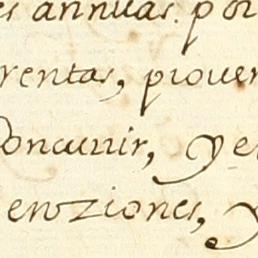 es annuas. por
rentas, prouen
Concurrir, y e
eroziones, y